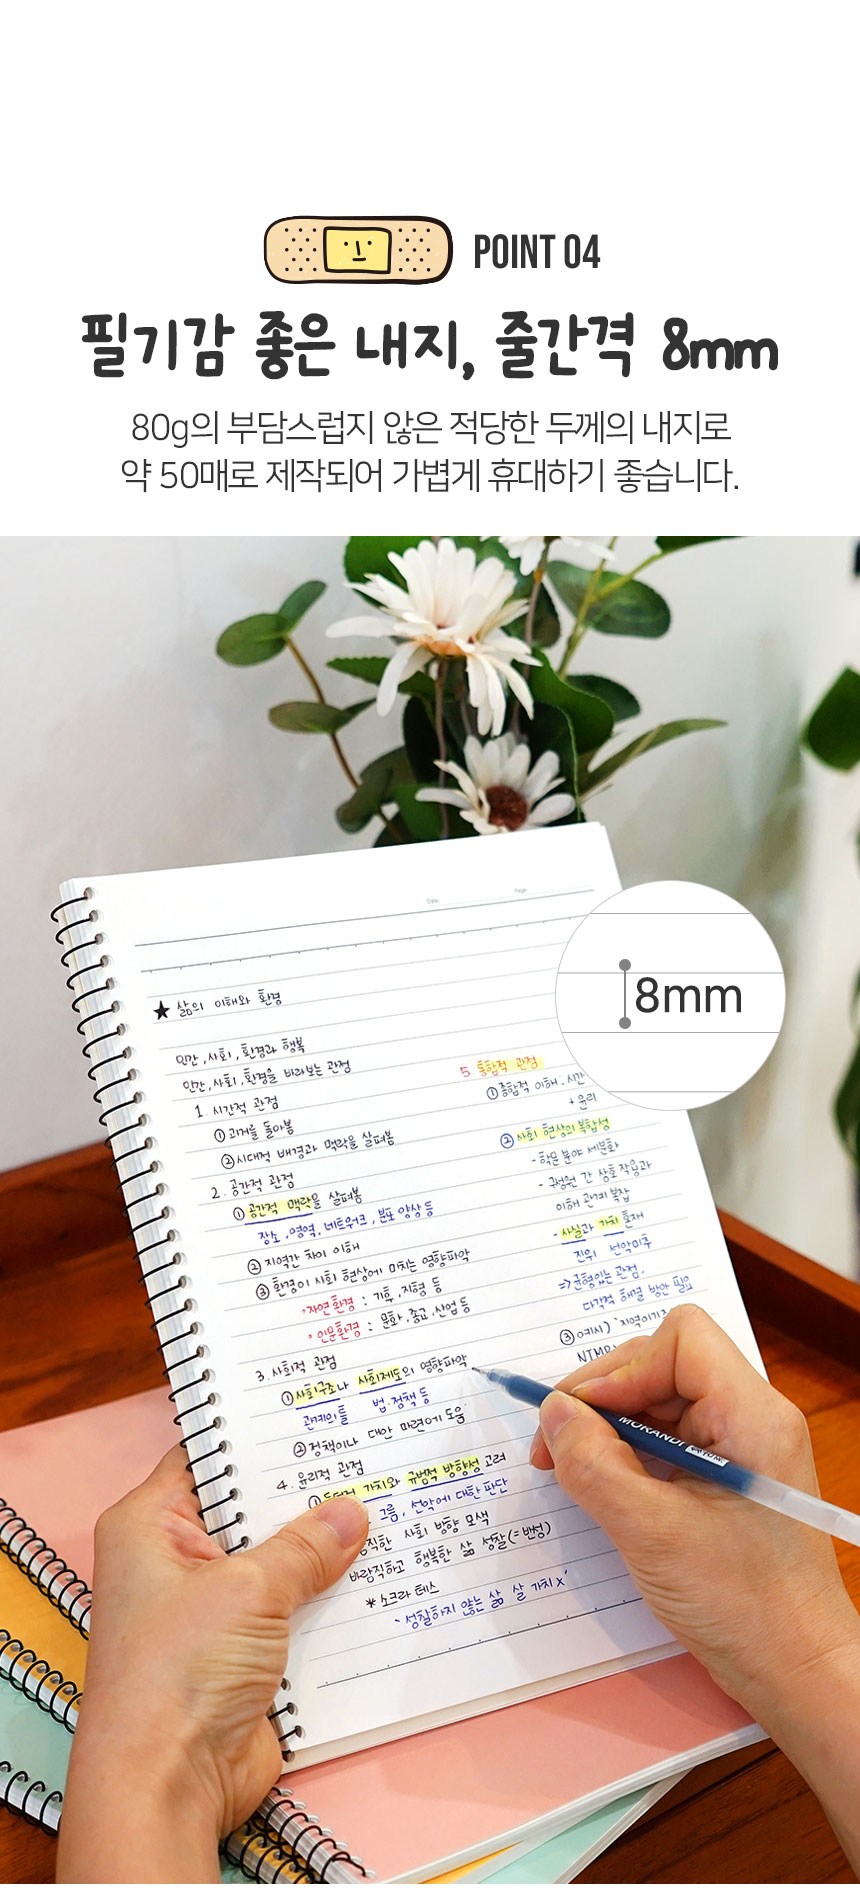 POINT 04
필기감 좋은 내지, 줄간격 8mm
80g의 부담스럽지 않은 적당한 두께의 내지로
약 50매로 제작되어 가볍게 휴대하기 좋습니다.
Date.
Page.
8mm
★ 삶의 이해와 환경
인간, 사회, 환경과 행복
인간, 사회, 환경을 바라보는 관점
1 시간적 관점
① 과거를 돌아봄
② 시대적 배경과 맥락을 살펴봄
2. 공간적 관점
① 공간적 맥락을 살펴봄
장소, 영역, 네트워크, 분포 양상 등
② 지역간 차이 이해
③ 환경이 사회 현상에 미치는 영향파악
자연환경 : 기후, 지형 등
인문환경 : 문화, 종교, 산업 등
3. 사회적 관점
① 사회구조나 사회제도의 영향파악
관계의 틀 법·정책 등
② 정책이나 대안 마련에 도움
4. 윤리적 관점
① 가치와 규범적 방향성 고려
그름, 선악에 대한 판단
사회 방향 모색
바람직하고 행복한 삶 성찰(=반성)
* 소크라테스
- 성찰하지 않는 삶 살 가치 x'
5 통합적 관점
① 통합적 이해. 시간
+ 윤리
② 사회 현상의 복합성
- 학문 분야 세분화
- 구성원 간 상호 작용과
이해 관계 복잡
- 사실과 가치 혼재
진위 선악미추
=> 균형있는 관점.
다각적 해결 방안 필요
③ 예시) '지역이기주
NIMBY
MORANDI